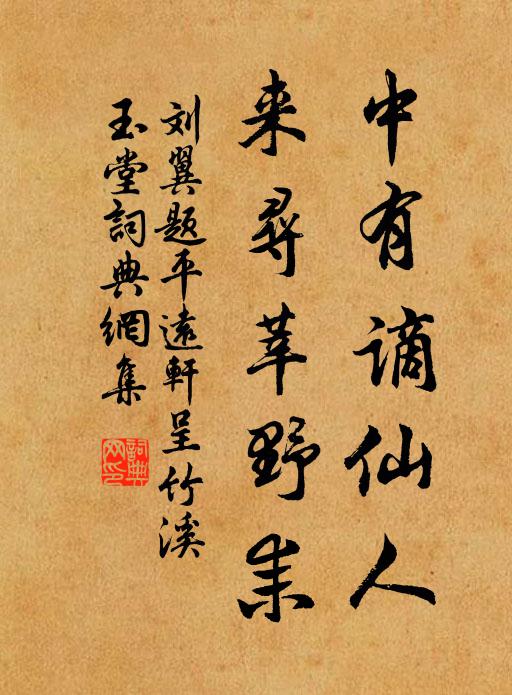 中有谪仙人
来寻莘野耒
刘翼题平遠軒呈竹溪
玉堂詞典網集
詞典网印